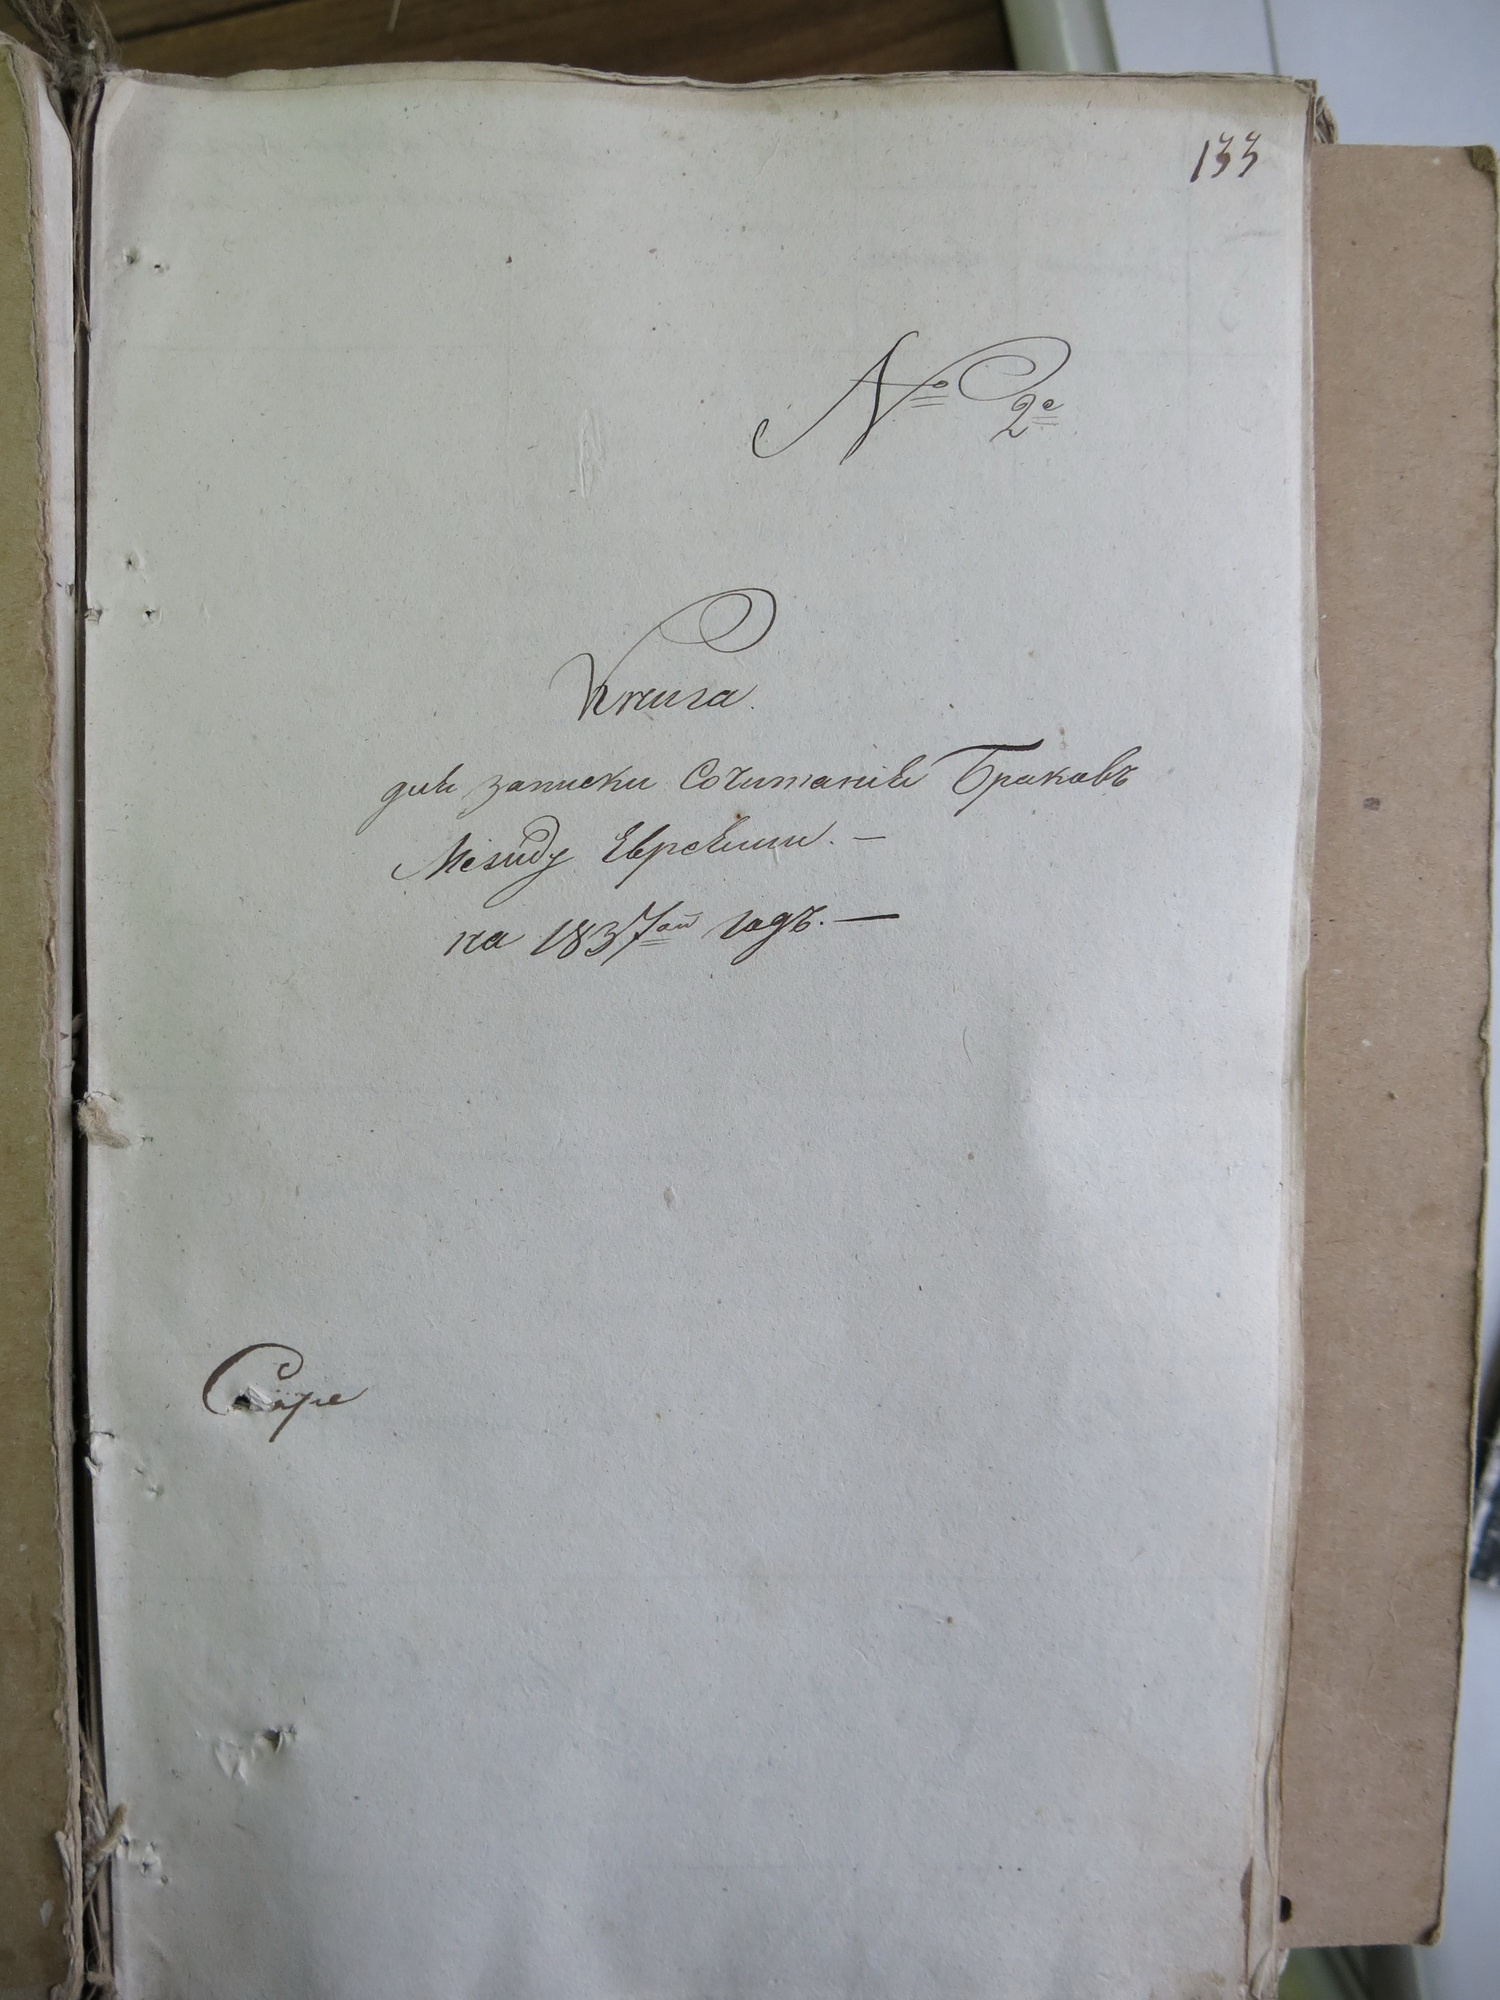 133
№ 2е
Книга
для записки Сочитанія Браковъ
Между Евреями. —
на 1837ой годъ. —